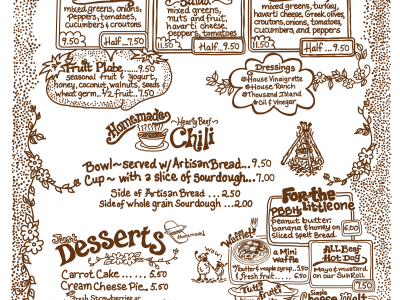 mixed greens, onions,
peppers, tomatoes,
cucumbers & croutons
9.50
Half...7.50
Salad
mixed greens,
nuts and fruit,
havarti cheese,
peppers, tomatoes
11.50
Half...9.50
mixed greens, turkey,
havarti cheese, Greek olives,
croutons, onions, tomatoes,
cucumbers, and peppers
11.50
Half...9.50
Fruit Plate.....9.50
seasonal fruit & yogurt,
honey, coconut, walnuts, seeds
wheat germ.. 1/2 fruit...7.50
Dressings
House Vinaigrette
House Ranch
Thousand Island
Oil & Vinegar
Homemade
~Hearty Beef~
Chili
Bowl~served w/Artisan Bread...9.50
Cup~ with a slice of sourdough...7.00
Side of Artisan Bread ... 2.50
Side of whole grain Sourdough ...2.00
For the
Little one
PBBH
peanut butter,
banana & honey on
sliced Spelt Bread.
6.00
Desserts
Homemade!
Carrot Cake ...... 5.50
Cream Cheese Pie. 5.50
Fresh Strawberries or
Waffle!
WOW!
a Mini
Waffle
w/butter & maple syrup..5.50
& fresh fruit...... 6.50
Tutti
fruiti
All Beef
Hot Dog
Mayo & mustard
on our Sub Roll.
7.50
Simple
Cheese Melt